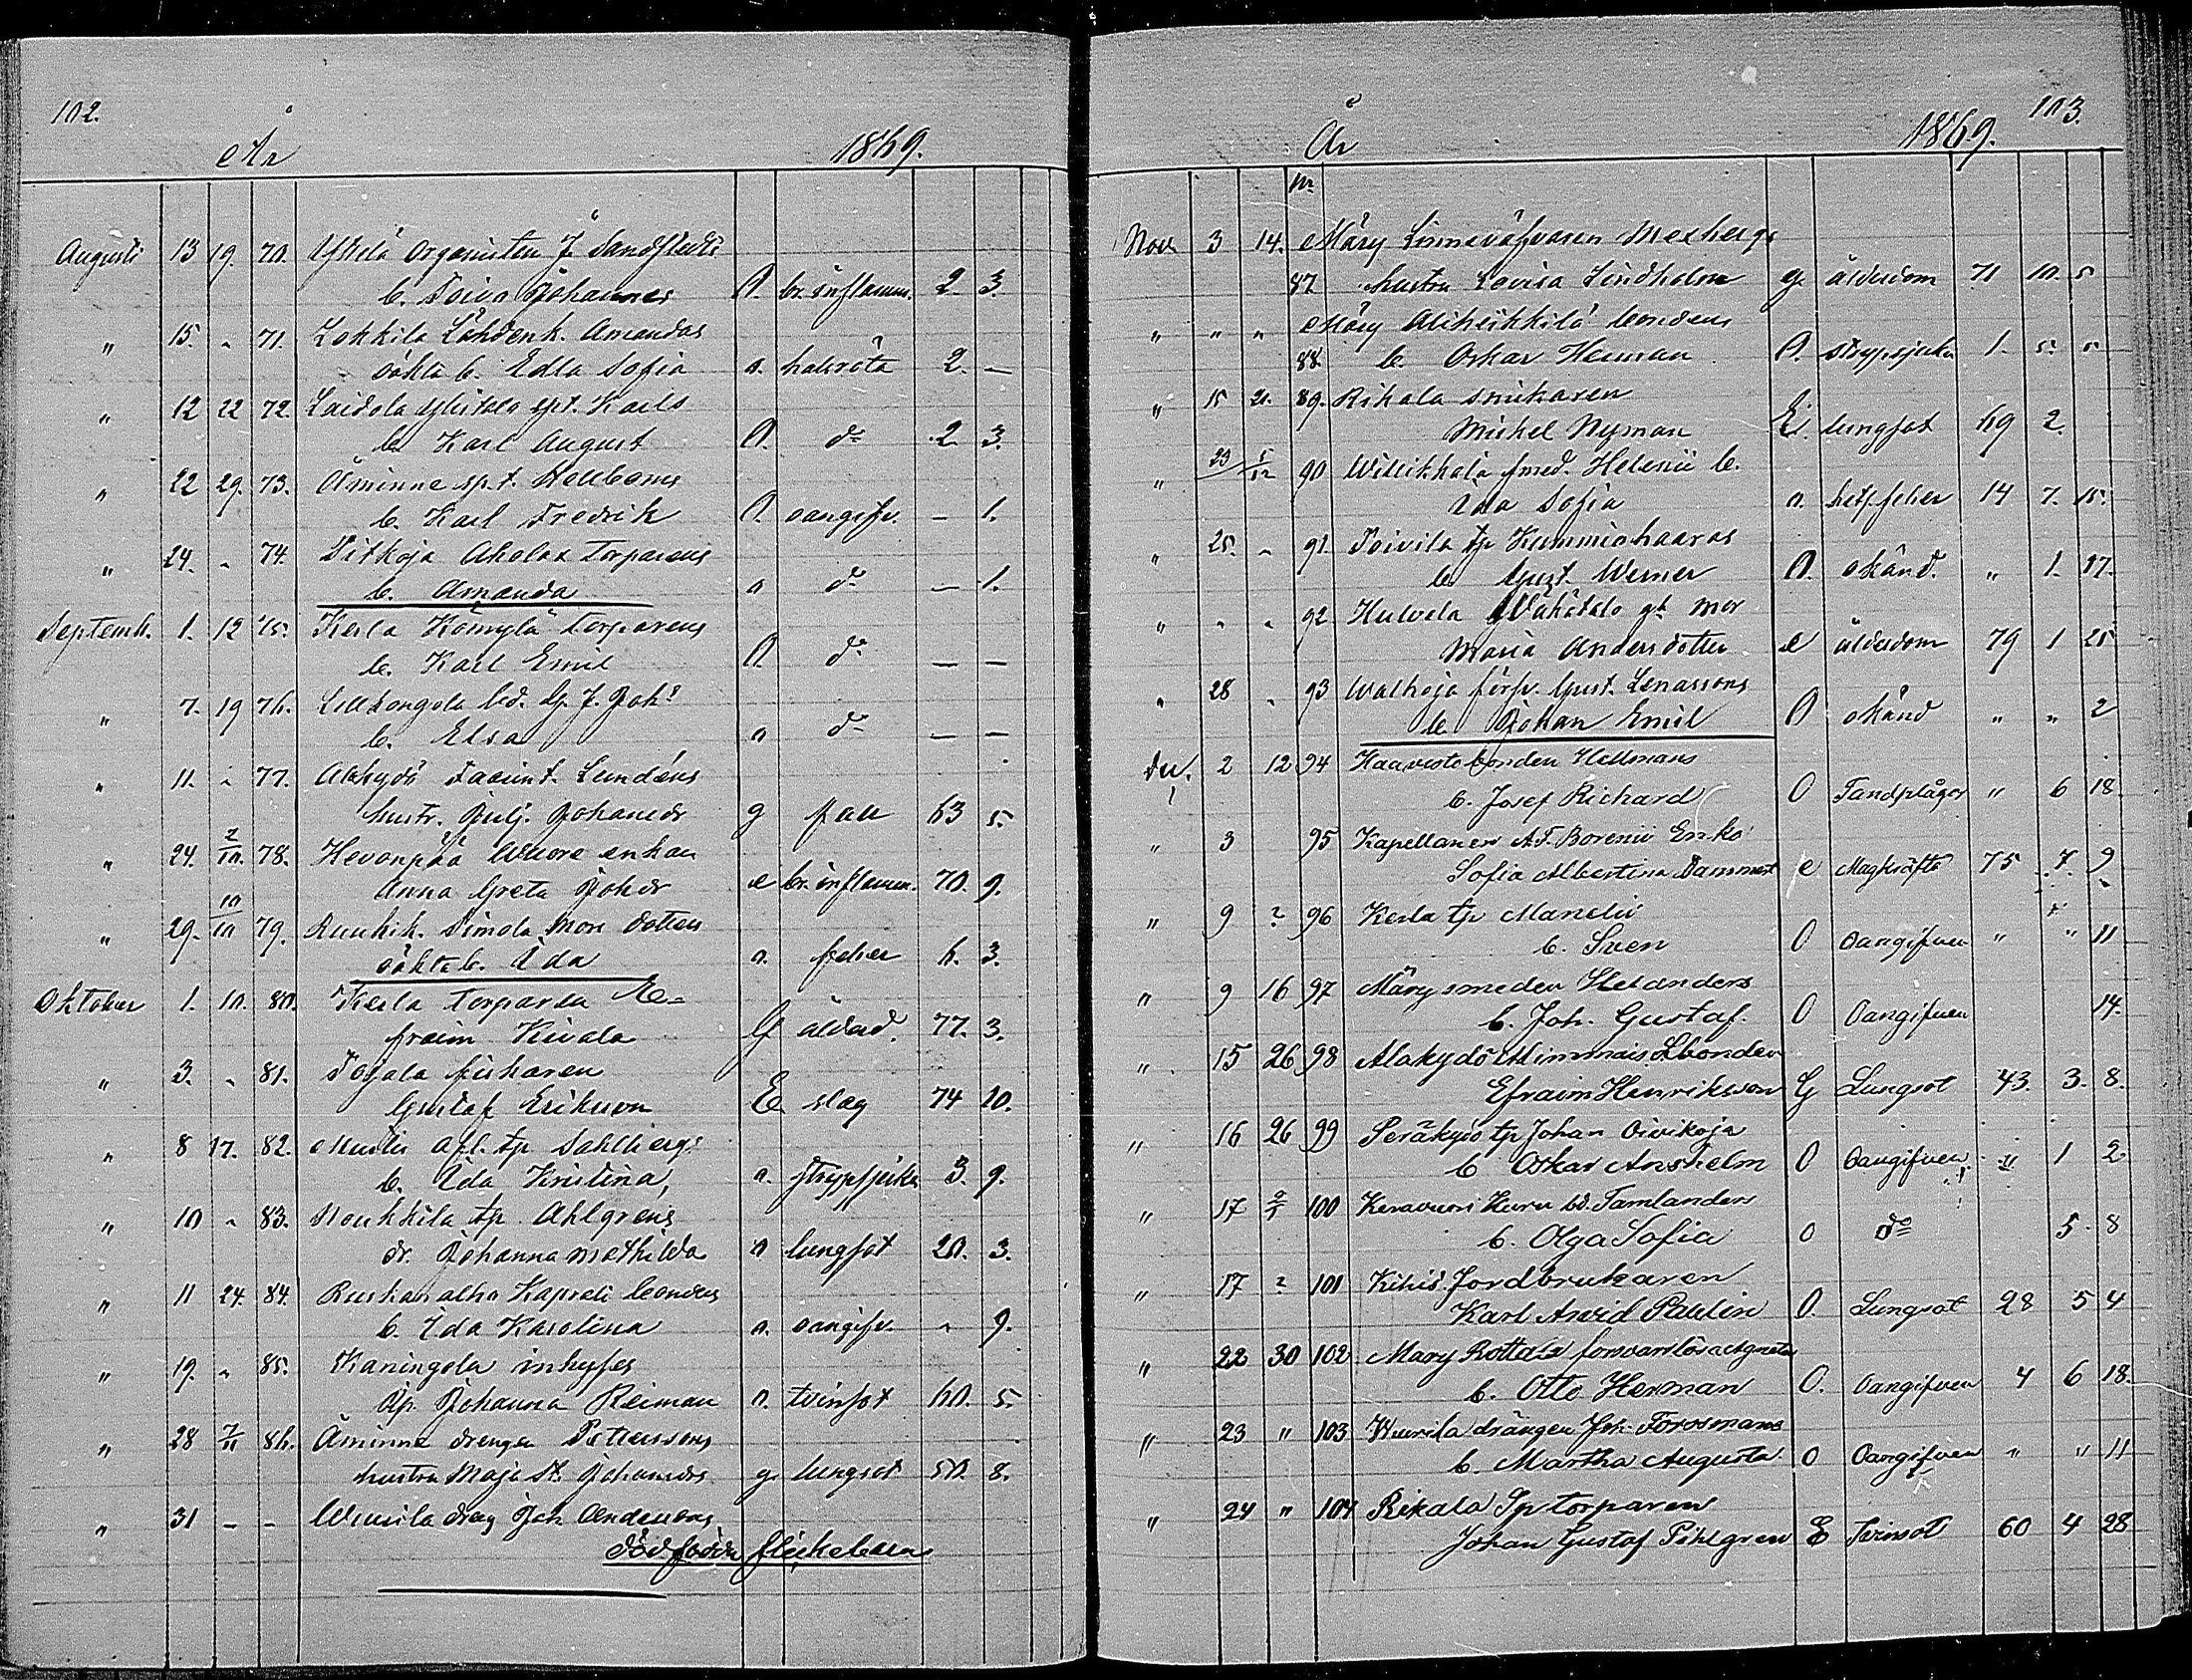 102.
År 1869.
Augusti 13 19. 70. Yskelä Organisten J. Sandstedts
b. Toivo Johannes O. br. inflamm. 2 3.
" 15. " 71. Lokkila Lähdenk. Amandas
oäkta b. Edla Sofia o. halsröta 2. —
" 12 22 72. Laidola Ylitalo spt. Karls
b. Karl August O. do 2 3.
" 22 29. 73. Åminne sp.t. Hellboms
b. Karl Fredrik O. oangifv. — 1.
" 24. " 74. Pitkoja Aholas Torparens
b. Amanda o do — 1.
Septemb. 1. 12 75. Kerla Kömylä torparens
b. Karl Emil O. do — —
" 7. 19 76. Lillkongola G. J. Joh:s
b. Elsa o do — —
" 11. " 77. Alakydö Lundéns
hustr. Julj. Johansdr g fall 63 5.
" 24. 2/10. 78. Hevonpää Wuore enkan
Anna Greta Johdr e br. inflamm. 70. 9.
" 29. 10/10 79. Ruuhik. Simola mors dotters
oäkta b. Ida o. feber 6. 3.
Oktober 1. 10. 80. Kerla torparen E-
fraim Kivala G ålderd. 77. 3.
" 3. " 81. Tojala fiskaren
Gustaf Eriksson E. slag 74 10.
" 8 17. 82. afl. tp. Sahlbergs
b. Ida Kristina, o. strypsjuka 3. 9.
" 10 " 83. Noukkila tp. Ahlgrens
dr. Johanna Mathilda o lungsot 20. 3.
" 11 24. 84. Ruskanalho Kaprali bondens
b. Ida Karolina o. oangifv. " 9.
" 19. " 85. Kaningola inhyses
Johanna Reiman o. tvinsot 60. 5.
" 28 7/11 86. Åminne drengen Petterssons
hustru Maja St. Johansdr g. lungsot 50. 8.
" 31 — — Wuorila dreng Joh. Anderssons
dödfödda flickebarn
103.
År 1869.
No
Nov. 3 14. Märy Linneväfvaren Mexbergs
87. hustru Lovisa Lindholm g. ålderdom 71 10. 5
" " " Märy Aliheikkilä bondens
88. b. Oskar Herman O. strypsjuka 1. 5. 5
" 15 21. 89. Rikala snickaren
Michel Nyman E. lungsot 69 2.
" 23 5/12 90 Willikkala smed. Helenii b.
Ida Sofia o. het. feber 14 7. 15.
" 25. " 91. Toivila tp Kummiohaaras
b. Gust. Werner O. okänd. " 1. 27.
" " " 92 Hulvela Wähätalo gl. mor
Maria Andersdotter e ålderdom 79 1 25
" 28 " 93 Walhoja förpr. Gust. Lenassons
b. Johan Emil O okänd " " 2
Dec. 2 12 94 Haavisto bonden Hellmans
b. Josef Richard O Tandplågor " 6 18.
" 3 95 Kapellanen A.F. Borenii Enka
Sofia Albertina Dammert e Magkräfta 75 7. 9
" 9 ? 96 Kerla tp Mandelii
b. Sven O Oangifven " " 11
" 9 16 97 Märy smeden Helanders
b. Joh. Gustaf. O Oangifven 14.
" 15 26 98 Alakydö Mimmais Lbonden
Efraim Henriksson G Lungsot 43. 3. 8.
" 16 26 99 Peräkydö tp Johan Oivikoja
b Oskar Anshelm O Oangifven " 1 2
" 17 2/1 100 Keravuori Huru bd. Tamlanders
b. Olga Sofia o do 5 8
" 17 ? 101 Kihis. Jordbrukaren
Karl Arvid Paulin O. Lungsot 28 5 4
" 22 30 102. Mary Rottala forsvarslösa Agneta
b. Otto Herman O. Oangifven 4 6 18.
" 23 " 103 Wuorila drängen Joh. Forsmans
b. Martha Augusta. O Oangifven " " 11
" 24 " 104 Rikala Sptorparen
Johan Gustaf Pihlgren E Tvinsot 60 4 28